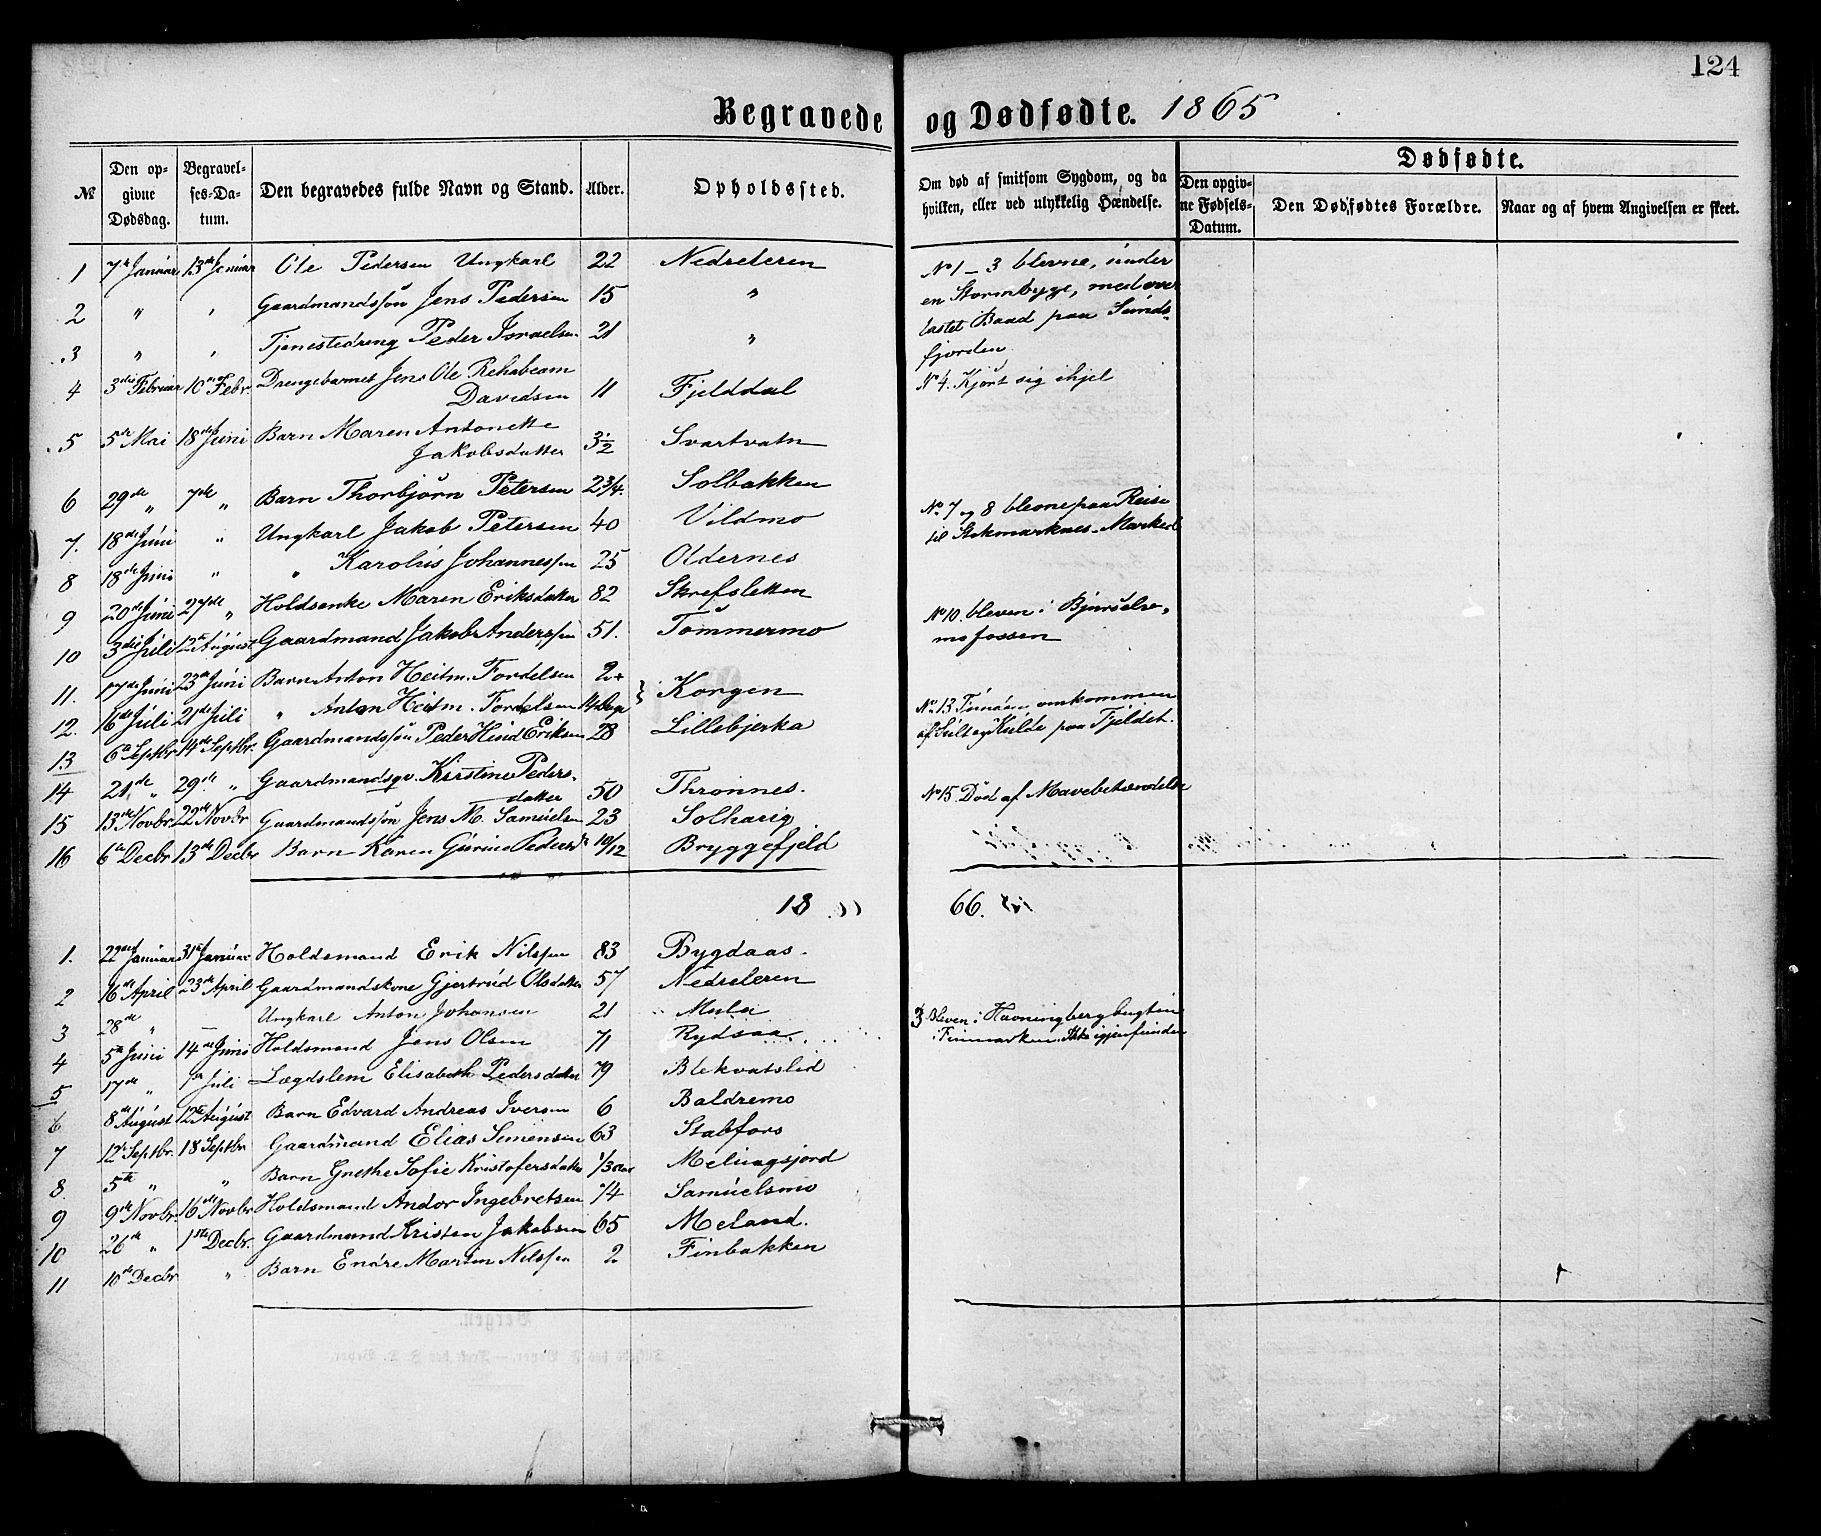 124
Begravede og Dødfødte. 1865
№ Den opgivne Dødsdag. Begravelses-Datum. Den begravedes fulde Navn og Stand. Alder. Opholdssted. Om død af smitsom Sygdom, og da hvilken, eller ved ulykkelig Hændelse. Dødfødte.
Den opgivne Fødsels-Datum. Den Dødfødtes Forældre. Naar og af hvem Angivelsen er skeet.
1 7de Januar 13de Januar Ole Pedersen Ungkarl 22 Nedreleren №1-3 blevne, under
2 " " Gaardmandssøn Jens Pedersen 15 " en Stormbyge, med over
3 " " Tjenestedreng Peder Israelsen 21 " lastet Baad paa Sunds-
fjorden
4 3die Februar 10de Febr. Drengebarnet Jens Ole Rehabeam №4. Kjørt sig ihjel
Davidsen 11 Fjelddal
5 5te Mai 18de Juni Barn Maren Antonette
Jakobsdatter 3½ Svartvatn
6 29de " 7de " Barn Thorbjørn Petersen 2¾. Solbakken
7. 18de Juni " Ungkarl Jakob Petersen 40 Vildmo №7 og 8 blevne paa Reise
til Stokmarknes-Marked
8 18de Juni " " Karolus Johannessen 25 Oldernes
9 20de Juni 27de " Holdsenke Maren Eriksdatter 82 Skrefsletten
10 3die Juli 12te August Gaardmand Jakob Anderssen 51. Tømmermo №10. bleven i Bjurselv-
mofossen
11. 17de Juni 23de Juni Barn Anton Heitm. Fordelsen 2 Korgen
12. 16de Juli 21de Juli " Anton Heitm. Fordelsen 14 Dage
13 6te Septbr. 14de Septbr. Gaardmandssøn Peder Hind Eriksen 28 Lillebjerka №13 omkommen
af Sult og Kulde paa Fjeldet.
14 21de " 29de " Gaardmandsqv. Kirstine Peders-
datter 50 Thronnes.
15 13de Novbr. 22de Novbr Gaardmandssøn Jens M. Samuelsen 23 Solhaug №15. Død af Mavebetændelse
16 6te Decbr 13de Decbr Barn Karen Gurine Pedersd. 10/12 Bryggefjeld
18 66.
1. 22de Januar 31te Januar Holdsmand Erik Nilssen 83 Bygdaas.
2 16de April 23de April Gaardmandskone Gjertrud Olsdatter 57 Nedreleren
3 28de " — Ungkarl Anton Johansen 21 Mula 3 Bleven i Havningbergbugten
i Finmarken. Ikke igjenfunden
4 5te Juni 14de Juni Holdsmand Jens Olsen 71 Rydsaa
5 17de " 1ste Juli Lægdslem Elisabeth Pedersdatter 79 Blekvatslid
6 8de August 12te August Barn Edvard Andreas Iversen 6 Baldremo
7 12te Septbr. 18 Septbr. Gaardmand Elias Simensen 63 Stabfors
8 5te " " Barn Grethe Sofie Kristofersdatter 1/3 Aar
9 9de Novbr. 16de Novbr Holdsmand Andor Ingebretsen 74 Samuelsmo
10 26de " 1ste Decbr. Gaardmand Kristen Jakobsen 65 Meland.
11 10de Decbr " Barn Endre Martin Nilssen 2 Finbakken